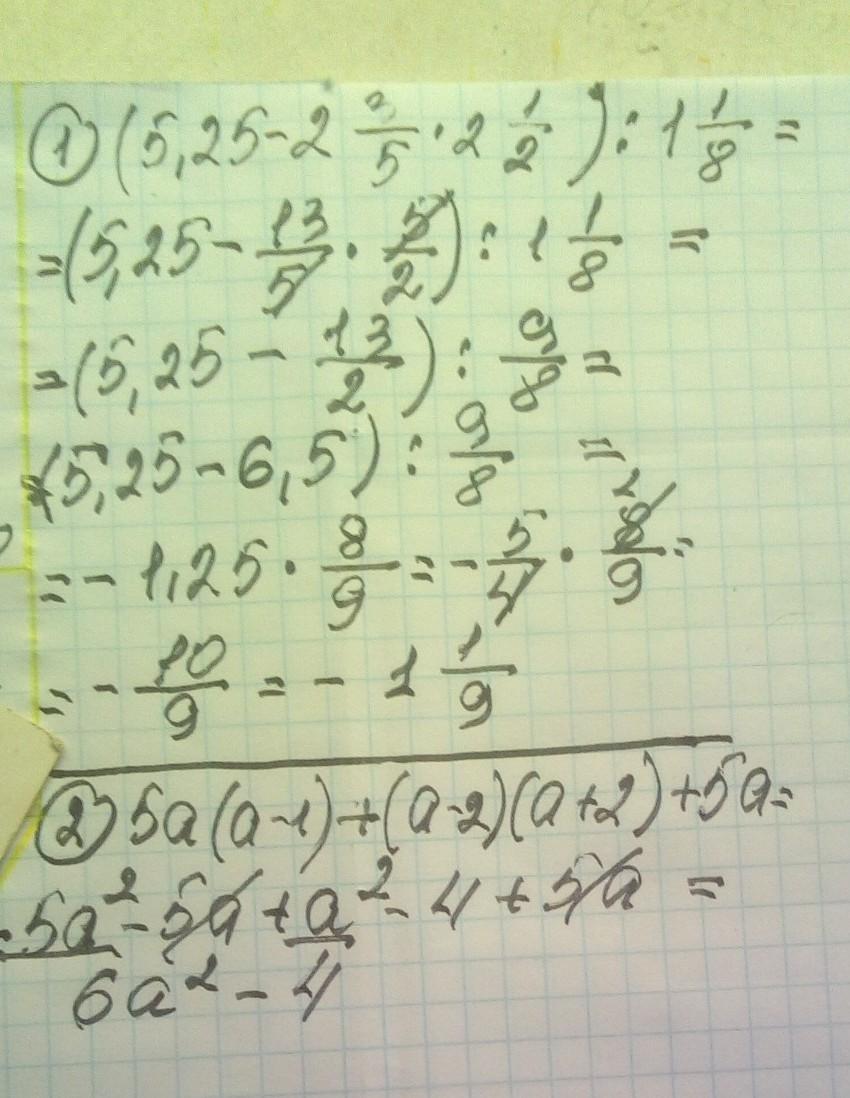 ① (5,25 - 2 3/5 · 2 1/2) : 1 1/8 =
= (5,25 - 13/5 · 5/2) : 1 1/8 =
= (5,25 - 13/2) : 9/8 =
= (5,25 - 6,5) : 9/8 =
= - 1,25 · 8/9 = - 5/4 · 8/9 =
2
= - 10/9 = - 1 1/9
② 5a(a-1)+(a-2)(a+2)+5a=
= 5a² - 5a + a² - 4 + 5a =
6a² - 4